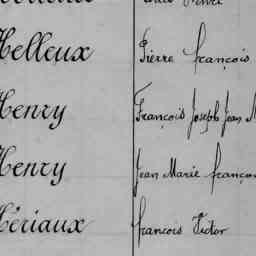 Helleux Pierre françois
Henry François Joseph Jean M
Henry Jean Marie françoi
Hériaux francois Victor